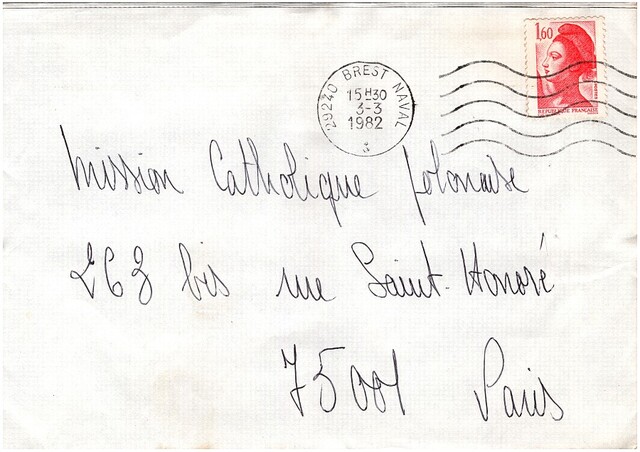 1,60
REPUBLIQUE FRANÇAISE
29240 BREST NAVAL
15H30
3-3
1982
Mission Catholique polonaise
263 bis rue Saint-Honoré
75001 Paris